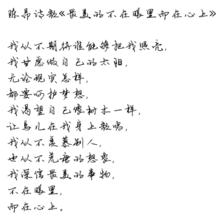 陈昂诗歌《最美的不在眼里而在心上》
我从不期待谁能够把我照亮，
我甘愿做自己的太阳，
无论现实怎样，
都要呵护梦想，
我渴望自己像树木一样，
让鸟儿在我身上歌唱，
我从不羡慕别人，
也从不荒唐的想象，
我深信最美的事物，
不在眼里，
而在心上。